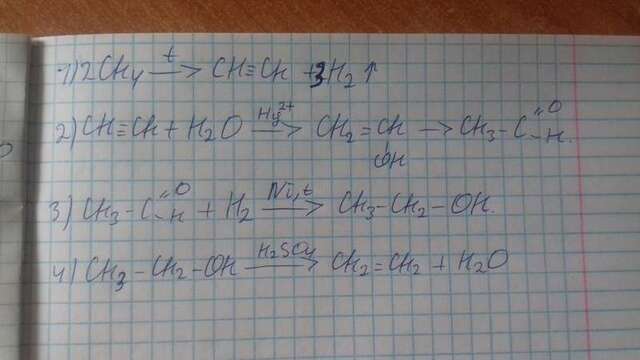 1) 2CH₄ →ᵗ CH≡CH + 3H₂↑
2) CH≡CH + H₂O →Hg²⁺ CH₂=CH–OH → CH₃–C(=O)–H.
3) CH₃–C(=O)–H + H₂ →Ni,t CH₃–CH₂–OH.
4) CH₃–CH₂–OH →H₂SO₄ CH₂=CH₂ + H₂O